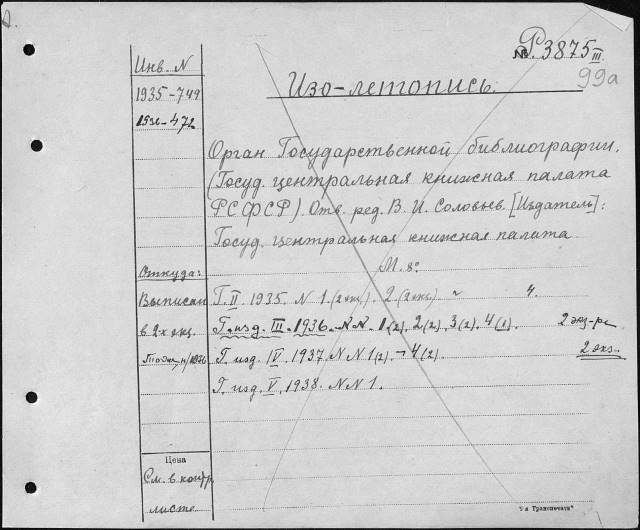 № Р3875 III
99а
Инв. N
1935-749
1936-472
Изо-летопись.
Орган Государственной библиографии.
(Госуд. центральная книжная палата
РСФСР). Отв. ред. В. И. Соловьев. [Издатель]:
Госуд. центральная книжная палата
М. 8°
Откуда:
Выписан
в 2х экз.
Г. II 1935. N 1. (2 экз.). 2. (2 экз.) 4.
Г. изд. III-1936.-N.N. 1(2), 2(2), 3(2). 4(1). 2 экз-ре
Г. изд. IV. 1937. N N 1(2). - 4(2). 2 экз.
Г. изд. V. 1938. N N 1.
Цена
См. в контр.
листе
"я Транспечати"